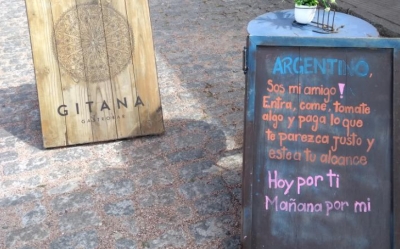 GITANA
GASTROBAR
ARGENTINO,
Sos mi amigo!
Entra, come, tomate
algo y paga lo que
te parezca justo y
este a tu alcance
Hoy por ti
Mañana por mi